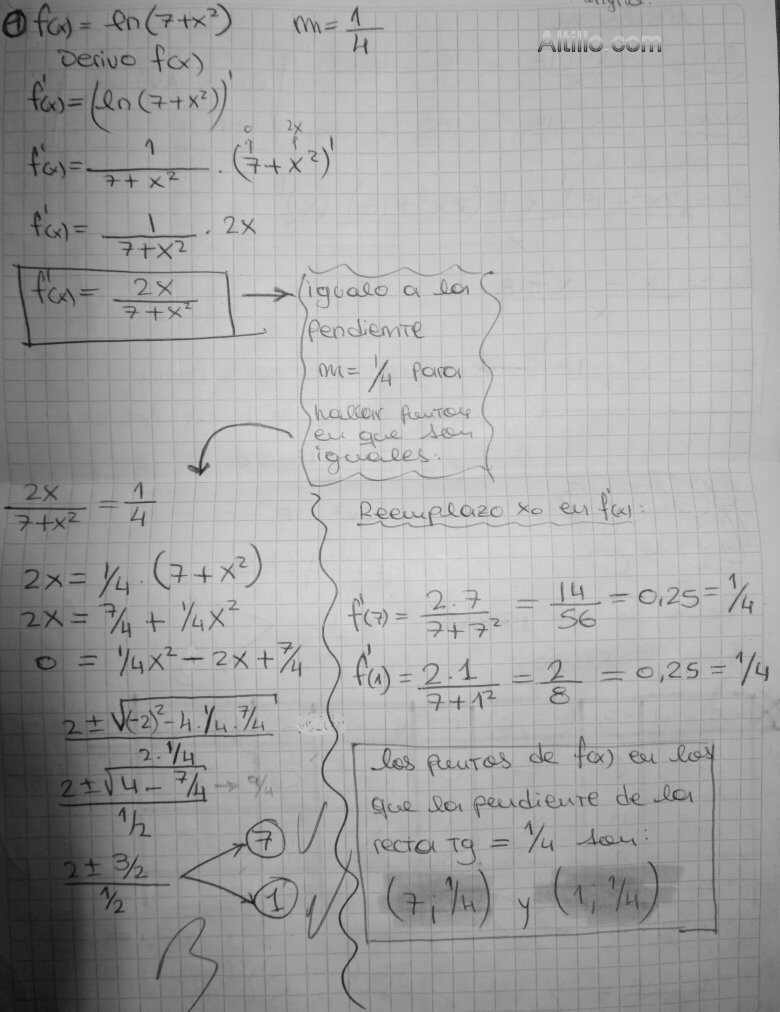 ① f(x) = ln(7+x²)    m = 1/4
Altillo.com
Derivo f(x)
f'(x) = (ln(7+x²))'
0 2x
f'(x) = 1/(7+x²) · (7+x²)'
f'(x) = 1/(7+x²) · 2x
f'(x) = 2x/(7+x²) →
igualo a la
pendiente
m = 1/4 para
hallar puntos
en que son
iguales.
2x/(7+x²) = 1/4
2x = 1/4 · (7+x²)
2x = 7/4 + 1/4x²
0 = 1/4x² - 2x + 7/4
(2 ± √((-2)² - 4 · 1/4 · 7/4))/(2 · 1/4)
(2 ± √(4 - 7/4))/(1/2) → 9/4
(2 ± 3/2)/(1/2)
7 ✓
1 ✓
B
Reemplazo x₀ en f'(x):
f'(7) = (2.7)/(7+7²) = 14/56 = 0,25 = 1/4
f'(1) = (2.1)/(7+1²) = 2/8 = 0,25 = 1/4
los puntos de f(x) en los
que la pendiente de la
recta Tg = 1/4 son:
(7; 1/4) y (1; 1/4)